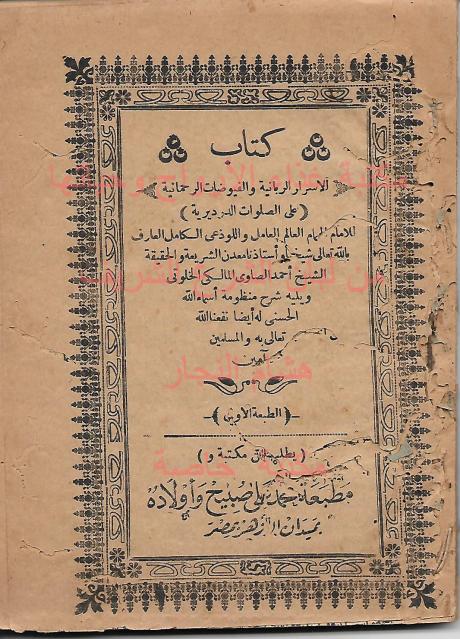 كتاب
الاسرار الربانية والفيوضات الرحمانية
(على الصلوات الدرديرية)
للامام الهمام العالم العامل واللوذعى الكامل العارف
بالله تعالى شيخنا وأستاذنا معدن الشريعة والحقيقة
الشيخ أحمد الصاوى المالكى الخلوتى
ويليه شرح منظومة أسماء الله
الحسنى له أيضا نفعنا الله
تعالى به والمسلمين
آمين
الطبعة الأولى
(يطلب من مكتبة و)
مطبعة محمد على صبيح وأولاده
بميدان الأزهر بمصر
هشام النجار
مكتبة خاصة